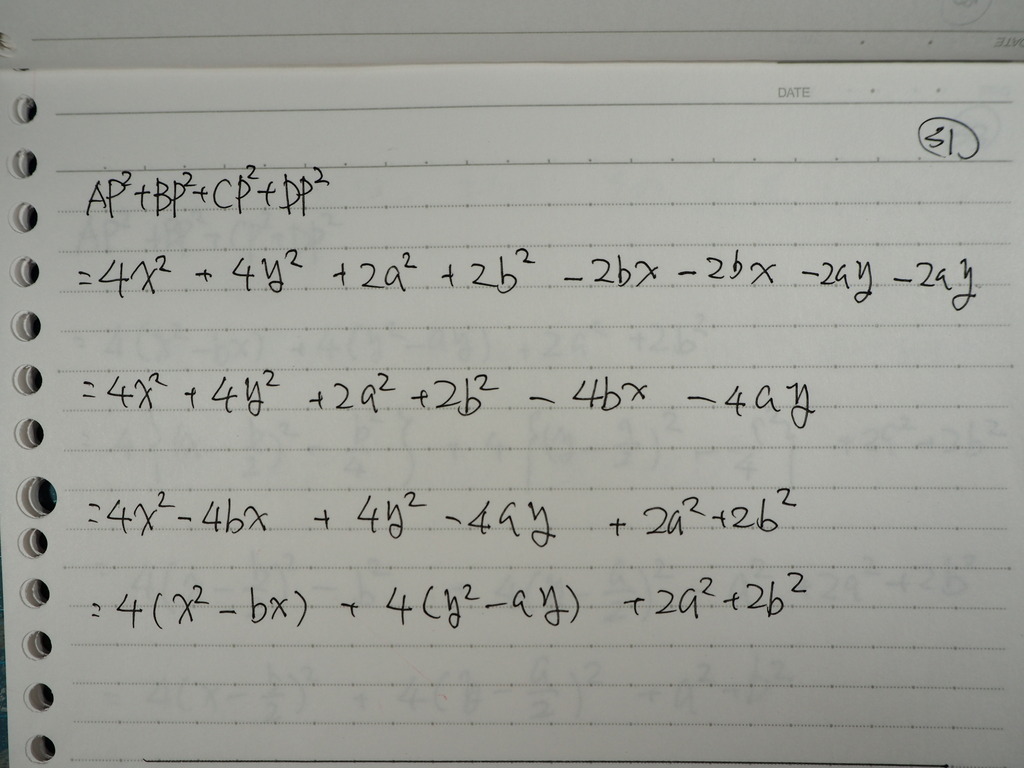 DATE
31
AP²+BP²+CP²+DP²
=4x² + 4y² +2a² +2b² -2bx -2bx -2ay -2ay
=4x² +4y² +2a² +2b² - 4bx -4ay
=4x² -4bx + 4y² -4ay +2a²+2b²
=4(x²-bx) + 4(y²-ay) +2a²+2b²